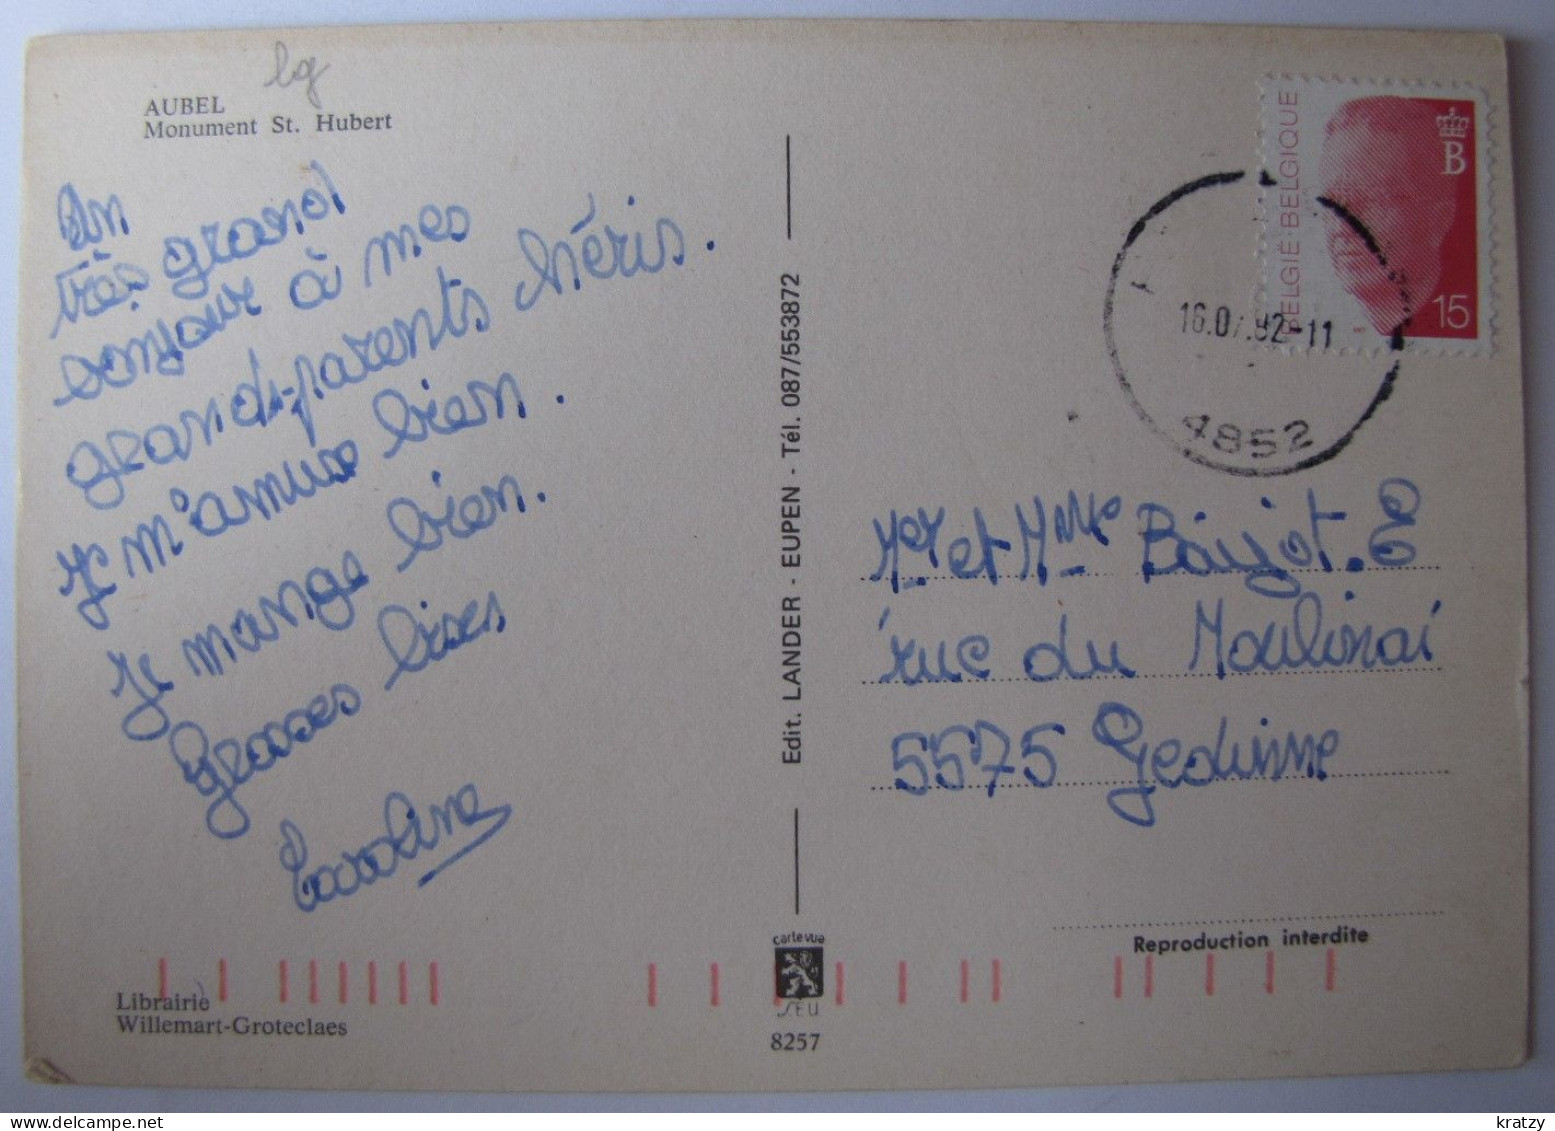 lg
AUBEL
Monument St. Hubert
Un
très grand
bonjour à mes
grands-parents chéris.
Je m'amuse bien.
Je mange bien.
Grosses bises
Caroline
Librairie
Willemart-Groteclaes
Edit. LANDER - EUPEN - Tél. 087/553872
carte vue
SEU
8257
BELGIË BELGIQUE
B
15
16.07.92-11
4852
Mr et Mme Baijot.E
rue du Moulinai
5575 Gedinne
Reproduction interdite
kratzy